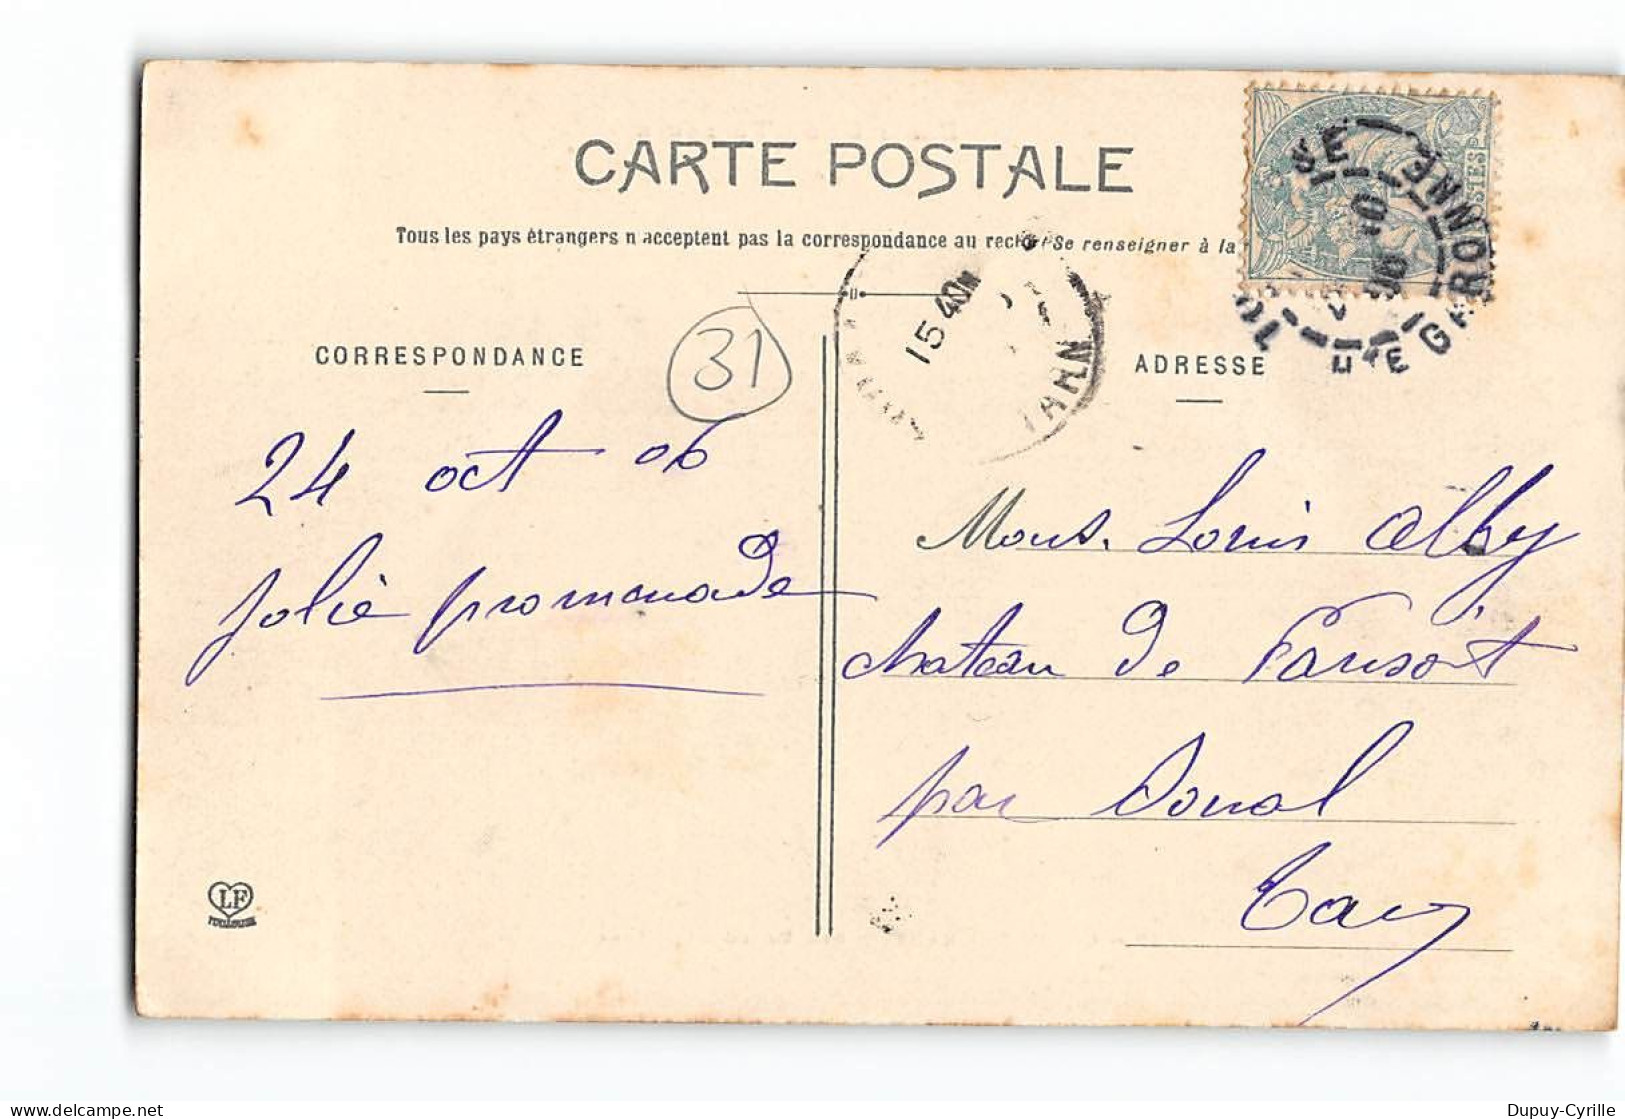 CARTE POSTALE
Tous les pays étrangers n'acceptent pas la correspondance au recto (Se renseigner à la
CORRESPONDANCE
ADRESSE
31
15 40
TARN
POSTES
Hte GARONNE
24 oct 06
Jolie promenade
Mons. Louis Alby
chateau de
par Doual
Tarn
LF
TOULOUSE
Dupuy-Cyrille